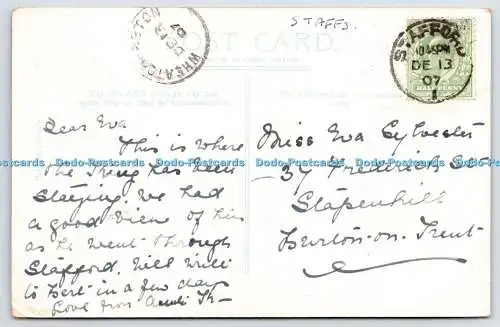 STAFFS.
POST CARD.
WHEATON
ASTON
DE 13
07
STAFFORD
DE 13
07
1
HALFPENNY
Dear Eva
This is where
the King has been
staying. We had
a good view of him
as he went through
Stafford. Will write
to Bert in a few days
Love from
Miss Eva Sylvester
34 Frederick St
Stapenhill
Burton-on-Trent
Dodo-Postcards Dodo-Postcards Dodo-Postcards Dodo-Postcards